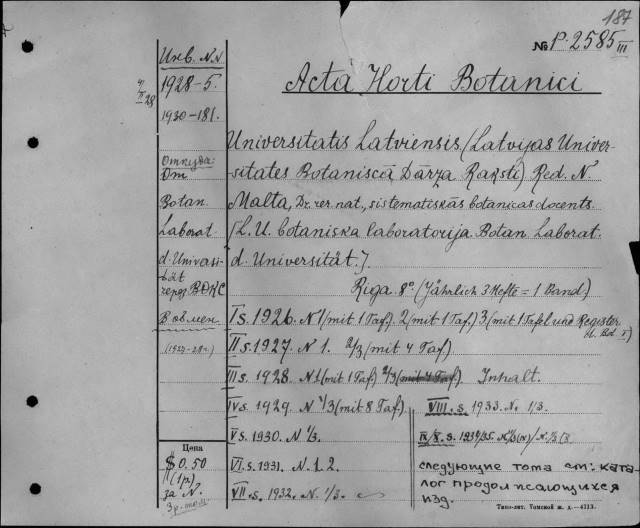 187
№ P-2585 III
Инв. N.N
1928-5.
4/II 28
1930-181.
Acta Horti Botanici
Universitatis Latviensis (Latvijas Univer-
sitates Botaniscā Dārza Raksti) Red. N.
Malta, Dr. rer. nat., sistematiskās botanicas docents.
[L. U. botaniska laboratorija. Botan. Laborat.
d. Universität.].
Riga 8º. (Jährlich 3 Hefte = 1 Band)
Откуда:
От
Botan.
Laborat.
d. Universi-
tät
через ВОКС
В обмен.
(1927-28 г.)
I s. 1926. N 1 (mit 1 Taf.) 2 (mit 1 Taf.) 3 (mit 1 Tafel und Register
II s. 1927. N 1. 2/3 (mit 4 Taf.)
III s. 1928. N 1 (mit 1 Taf.) 2/3 (mit 4 Taf.) Inhalt.
IV s. 1929. N 1/3 (mit 8 Taf.)
VIII. s. 1933. N. 1/3.
V s. 1930. N 1/3.
IX/X. s. 1934/35. N. 1/3
VI s. 1931. N. 1. 2.
VII. s. 1932. N. 1/3.
следующие тома см: ката-
лог продолжающихся
изд.
Цена
$ 0.50
(1 р)
за N.
3 р. том.
Типо-лит. Томской ж. д.—4113.